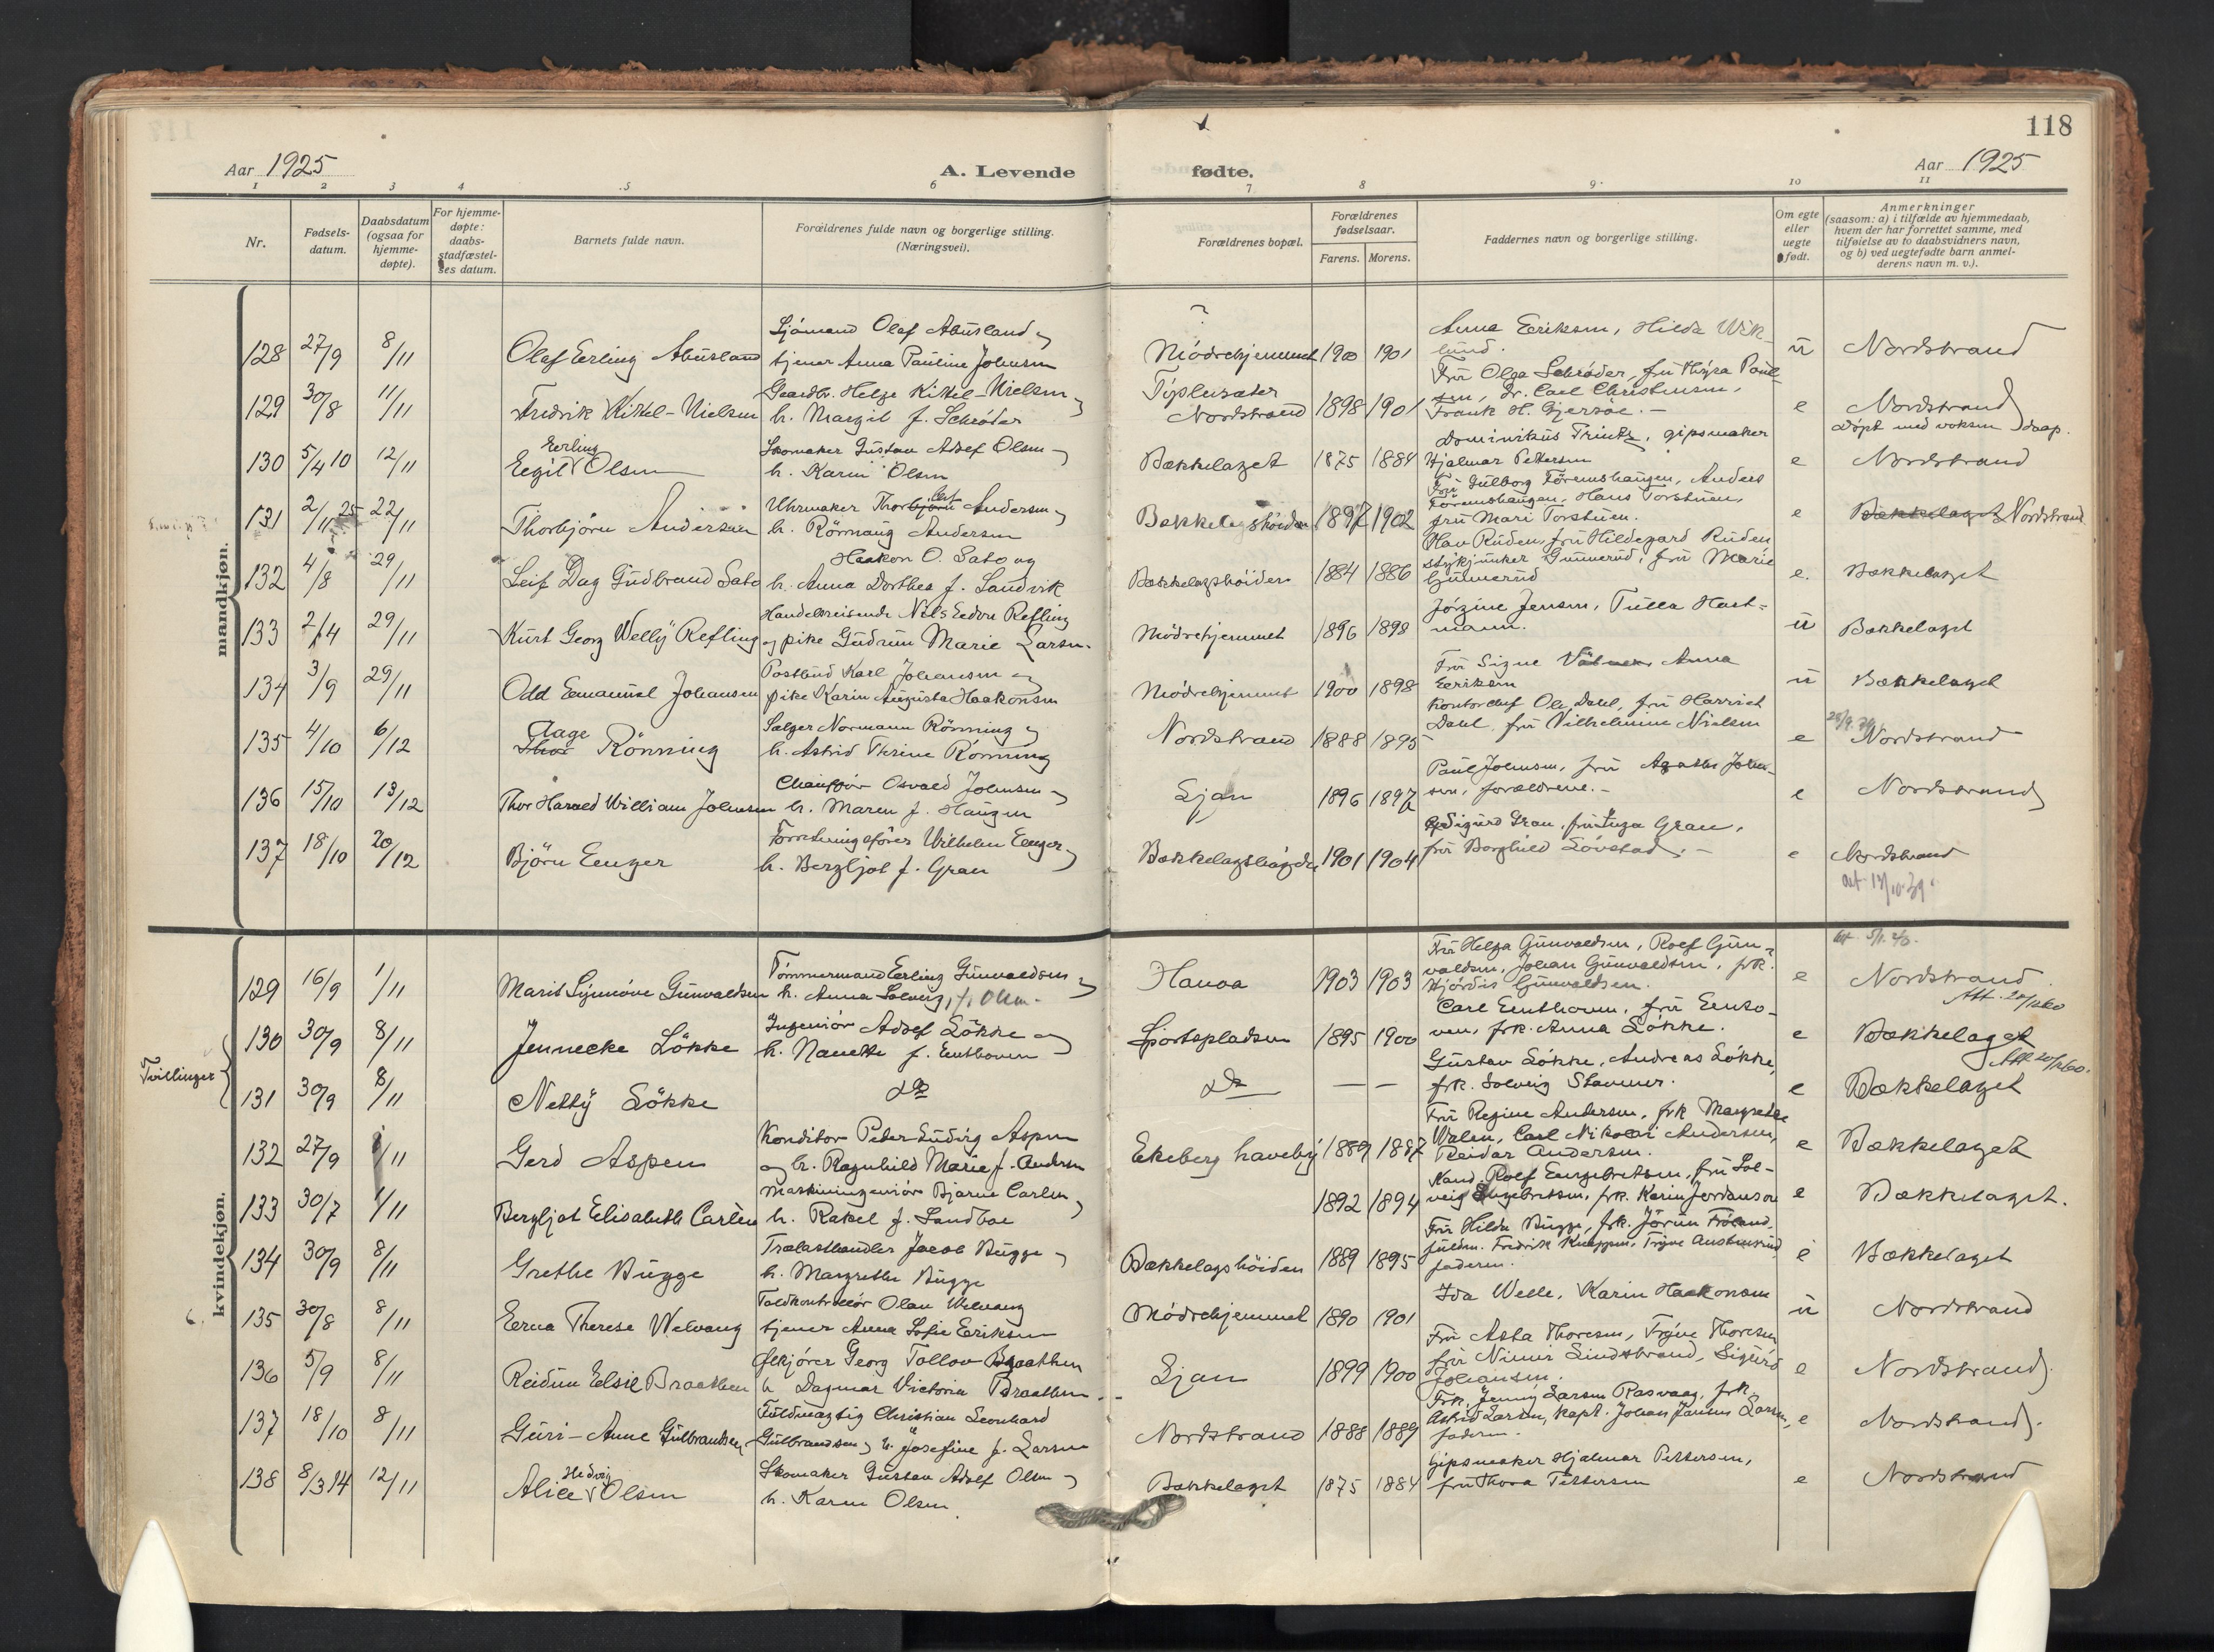 118
Aar 1925
A. Levende
fødte.
Aar 1925
1 2 3 4 5 6 7 8 9 10 11
Nr.
Fødsels-
datum.
Daabsdatum
(ogsaa for
hjemme-
døpte).
For hjemme-
døpte:
daabs-
stadfæstel-
ses datum.
Barnets fulde navn.
Forældrenes fulde navn og borgerlige stilling.
(Næringsvei).
Forældrenes bopæl.
Forældrenes
fødselsaar.
Farens. Morens.
Faddernes navn og borgerlige stilling.
Om egte
eller
uegte
født.
Anmerkninger
(saasom: a) i tilfælde av hjemmedaab,
hvem der har forrettet samme, med
tilføielse av to daabsvidners navn,
og b) ved uegtefødte barn anmel-
derens navn m. v.).
mandkjøn.
?
Sjömand Olaf Abusland og
Anna Eriksen, Hilda Wik-
128 27/9 8/11 Olaf Erling Abusland tjener Anna Pauline Johnsen Mödrehjemmet 1900 1901 lund. u Nordstrand
Helge Kittel-Nielsen og
Fru Olga Schrøder, fru Poul-
129 30/8 11/11 Fredrik Kittel-Nielsen h. Margit f. Schrøder Nordstrand 1898 1901 sen, Dr. Carl Christensen, e Nordstrand
Frank H. Gjersøe.-
Döpt med voksen daap.
Erling
Skomaker Gustav Adolf Olsen og
gipsmaker
130 5/4 10 12/11 Egil Olsen h. Karen Olsen Bækkelaget 1875 1884 Hjalmar Pettersen e Nordstrand
Uhrmaker Andersen og
Fru Gulborg Förenshaugen, Anders
Förenshaugen, Hans Torstuen,
131 2/11 25 22/11 Thorbjörn Andersen h. Rönnaug Andersen Bækkelagshöiden 1897 1902 fru Mari Torstuen. e Bækkelaget Nordstrand
Haakon O. Sato og
Olav Ruden, fru Hildegard Ruden
132 4/8 29/11 Leif Dag Gudbrand Sato h. Anna Dorthea f. Sandvik Bækkelagshöiden 1884 1886 Gunnerud, fru Marie e. Bækkelaget
Gunnerud
Handelsreisende Nils Edon Refling
Jörgine Jensen, Tulla Hart-
133 2/4 29/11 Kurt Georg Welly Refling og pike Gudrun Marie Larsen. Mödrehjemmet 1896 1898 mann. u Bækkelaget
Postbud Karl Johansen og
Fru Signe Anna
134 3/9 29/11 Odd Emanuel Johansen pike Karin Augusta Haakonsen Mödrehjemmet 1900 1898 Eriksen u Bækkelaget
Aage
Sælger Normann Rönning og
Kontorchef Ole Dahl, fru Harriet
135 4/10 6/12 Thor Rönning h. Astrid Thrine Rönning Nordstrand 1888 1895 Dahl, fru Vilhelmine Nielsen e Nordstrand
Chaufför Osvald Johnsen og
Paul Johnsen, fru Agathe John-
136 15/10 13/12 Thor Harald William Johnsen h. Maren f. Haugen Ljan 1896 1897 sen, forældrene.- e Nordstrand
Forretningsförer Vilhelm Enger og
Sigurd Gran, fru Inga Gran,
137 18/10 20/12 Björn Enger h. Bergljot f. Gran Bækkelagshögda 1901 1904 fru Borghild Lövstad.- e Nordstrand
att 12/10-39
kvindekjøn.
Tömmermand Erling Gunvaldsen og
Fru Helga Gunvaldsen, Rolf Gun-
valdsen, Johan Gunvaldsen, frk.
129 16/9 1/11 Marit Synnöve Gunvaldsen h. Anna Solveig, f. Olsen. Hauga 1903 1903 Hjördis Gunvaldsen. e Nordstrand
Att. 20/12 60
Ingeniör Adolf Lökke og
Carl Enthoven, fru Entho-
130 30/9 8/11 Jennecke Lökke h. Nanette f. Enthoven Sportspladsen 1895 1900 ven, frk. Anna Lökke. e Bækkelaget
Att 20/12 60.
Tvillinger
Gustav Lökke, Andreas Lökke,
131 30/9 8/11 Netty Lökke Do Do — — frk. Solveig Stammer. e Bækkelaget
Konditor Peder Ludvig Aspen
Fru Regine Andersen, frk Margrethe
Walen, Carl Nikolai Andersen,
132 27/9 1/11 Gerd Aspen og h. Ragnhild Marie f. Andersen Ekeberg haveby 1889 1887 Reidar Andersen. e Bækkelaget
Maskiningeniör Bjarne Carlen og
Kand. Rolf Engebretsen, fru Sol-
133 30/7 1/11 Bergljot Elisabeth Carlèn h. Rakel f. Sandboe 1892 1894 veig Engebretsen, frk. Karin Jordanson e Bækkelaget.
Trælasthandler Jacob Bugge og
Fru Hilda Bugge, frk. Jörun Fröland,
134 30/9 8/11 Grethe Bugge h. Margrethe Bugge Bækkelagshöiden 1889 1895 fuldm. Fredrik Knappen, Trÿve e Bækkelaget
faderen.
Toldkontrollör Olav Welvang
135 30/8 8/11 Erna Therese Welvang tjener Anna Sofie Eriksen Mödrehjemmet 1890 1901 Ida Welle, Karin Haakonsen u Nordstrand
Georg Tollov Braathen
Fru Asta Thoresen, Trÿve Thoresen
136 5/9 8/11 Reidun Elsie Braathen h Dagmar Victoria Braathen. Ljan 1899 1900 fru Nimi Lindstrand, Sigurd e Nordstrand.
Johansen.
Fuldmægtig Christian Leonhard
Frk. Jenny Larsen Rasvaag, frk.
137 18/10 8/11 Guri-Anne Gulbrandsen Gulbrandsen og h. Josefine f. Larsen Nordstrand 1888 1889 Astrid Larsen, kapt. Johan Larsen, e Nordstrand.
faderen.
Hedvig
Skomaker Gustav Adolf Olsen og
Gipsmaker Hjalmar Pettersen,
138 8/3 14 12/11 Alice Olsen h. Karen Olsen Bækkelaget 1875 1884 fru Thora Pettersen e Nordstrand